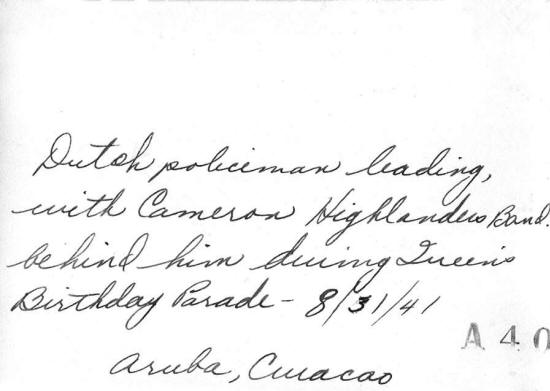 Dutch policeman leading,
with Cameron Highlanders Band.
behind him during Queen's
Birthday Parade - 8/31/41
A 40
Aruba, Curacao